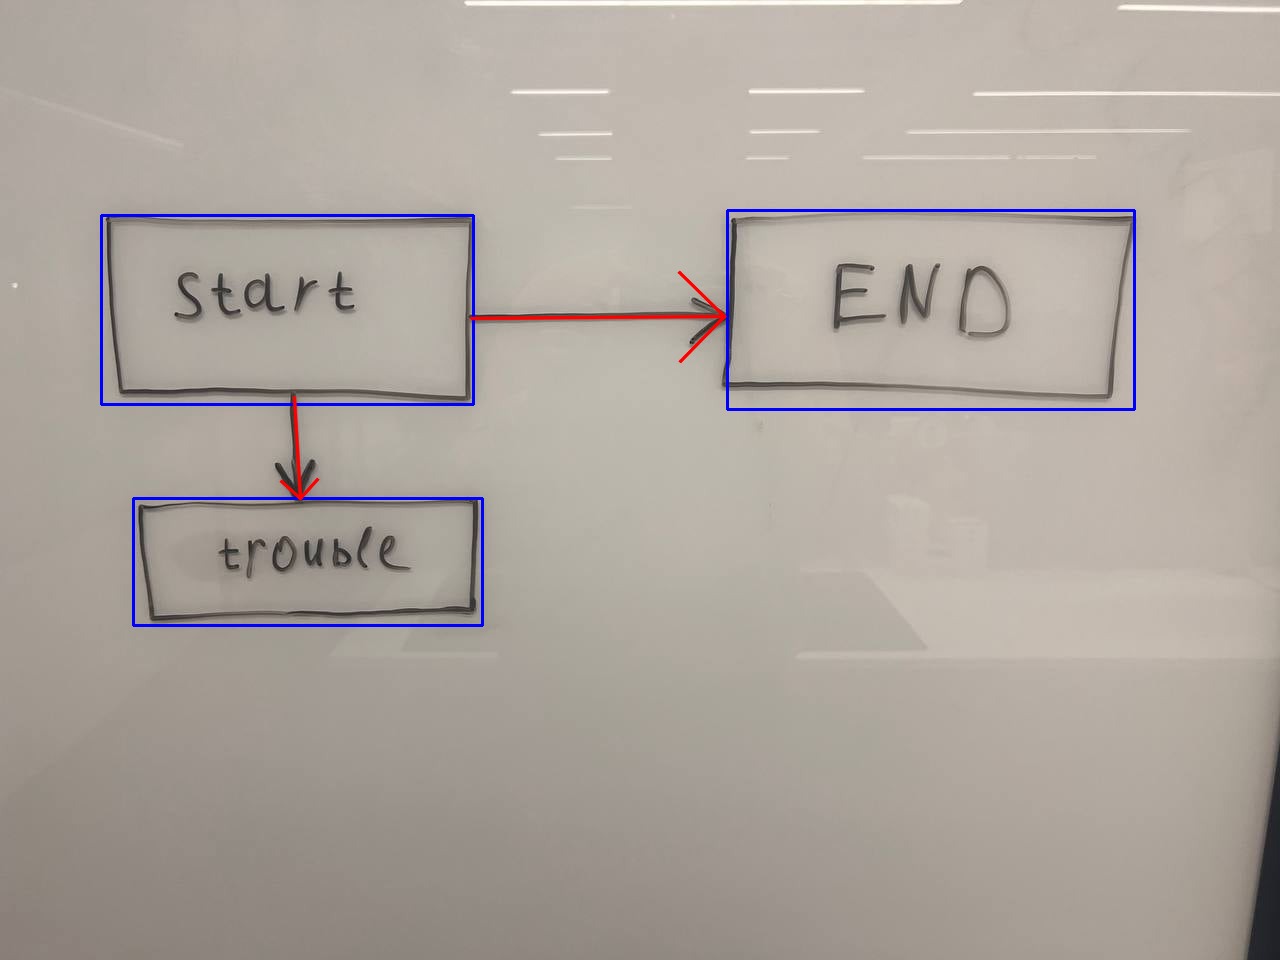 Start
END
trouble